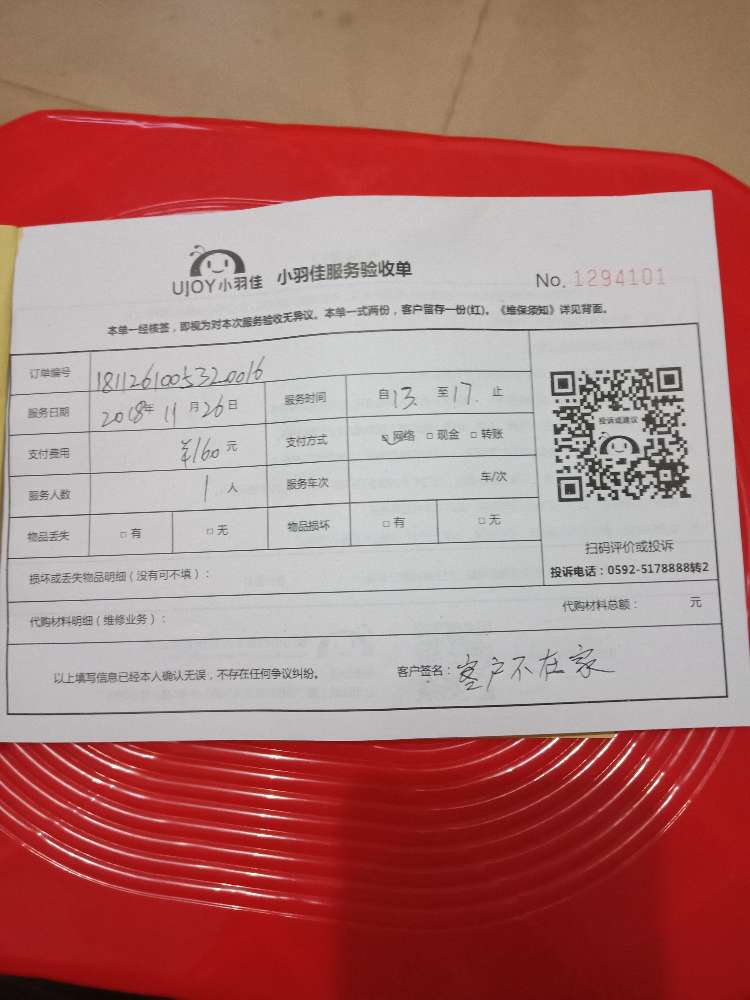 UJOY小羽佳 小羽佳服务验收单 No. 1294101
本单一经核签，即视为对本次服务验收无异议。本单一式两份，客户留存一份(红)。《维保须知》详见背面。
订单编号 1811261005320016
服务日期 2018年 11 月 26 日 服务时间 自 13. 至 17. 止
支付费用 ¥160 元 支付方式 ☑ 网络 □ 现金 □ 转账
服务人数 1 人 服务车次 车/次
物品丢失 □ 有 □ 无 物品损坏 □ 有 □ 无
投诉或建议
扫码评价或投诉
投诉电话：0592-5178888转2
损坏或丢失物品明细（没有可不填）：
代购材料明细（维修业务）： 代购材料总额： 元
以上填写信息已经本人确认无误，不存在任何争议纠纷。 客户签名：客户不在家